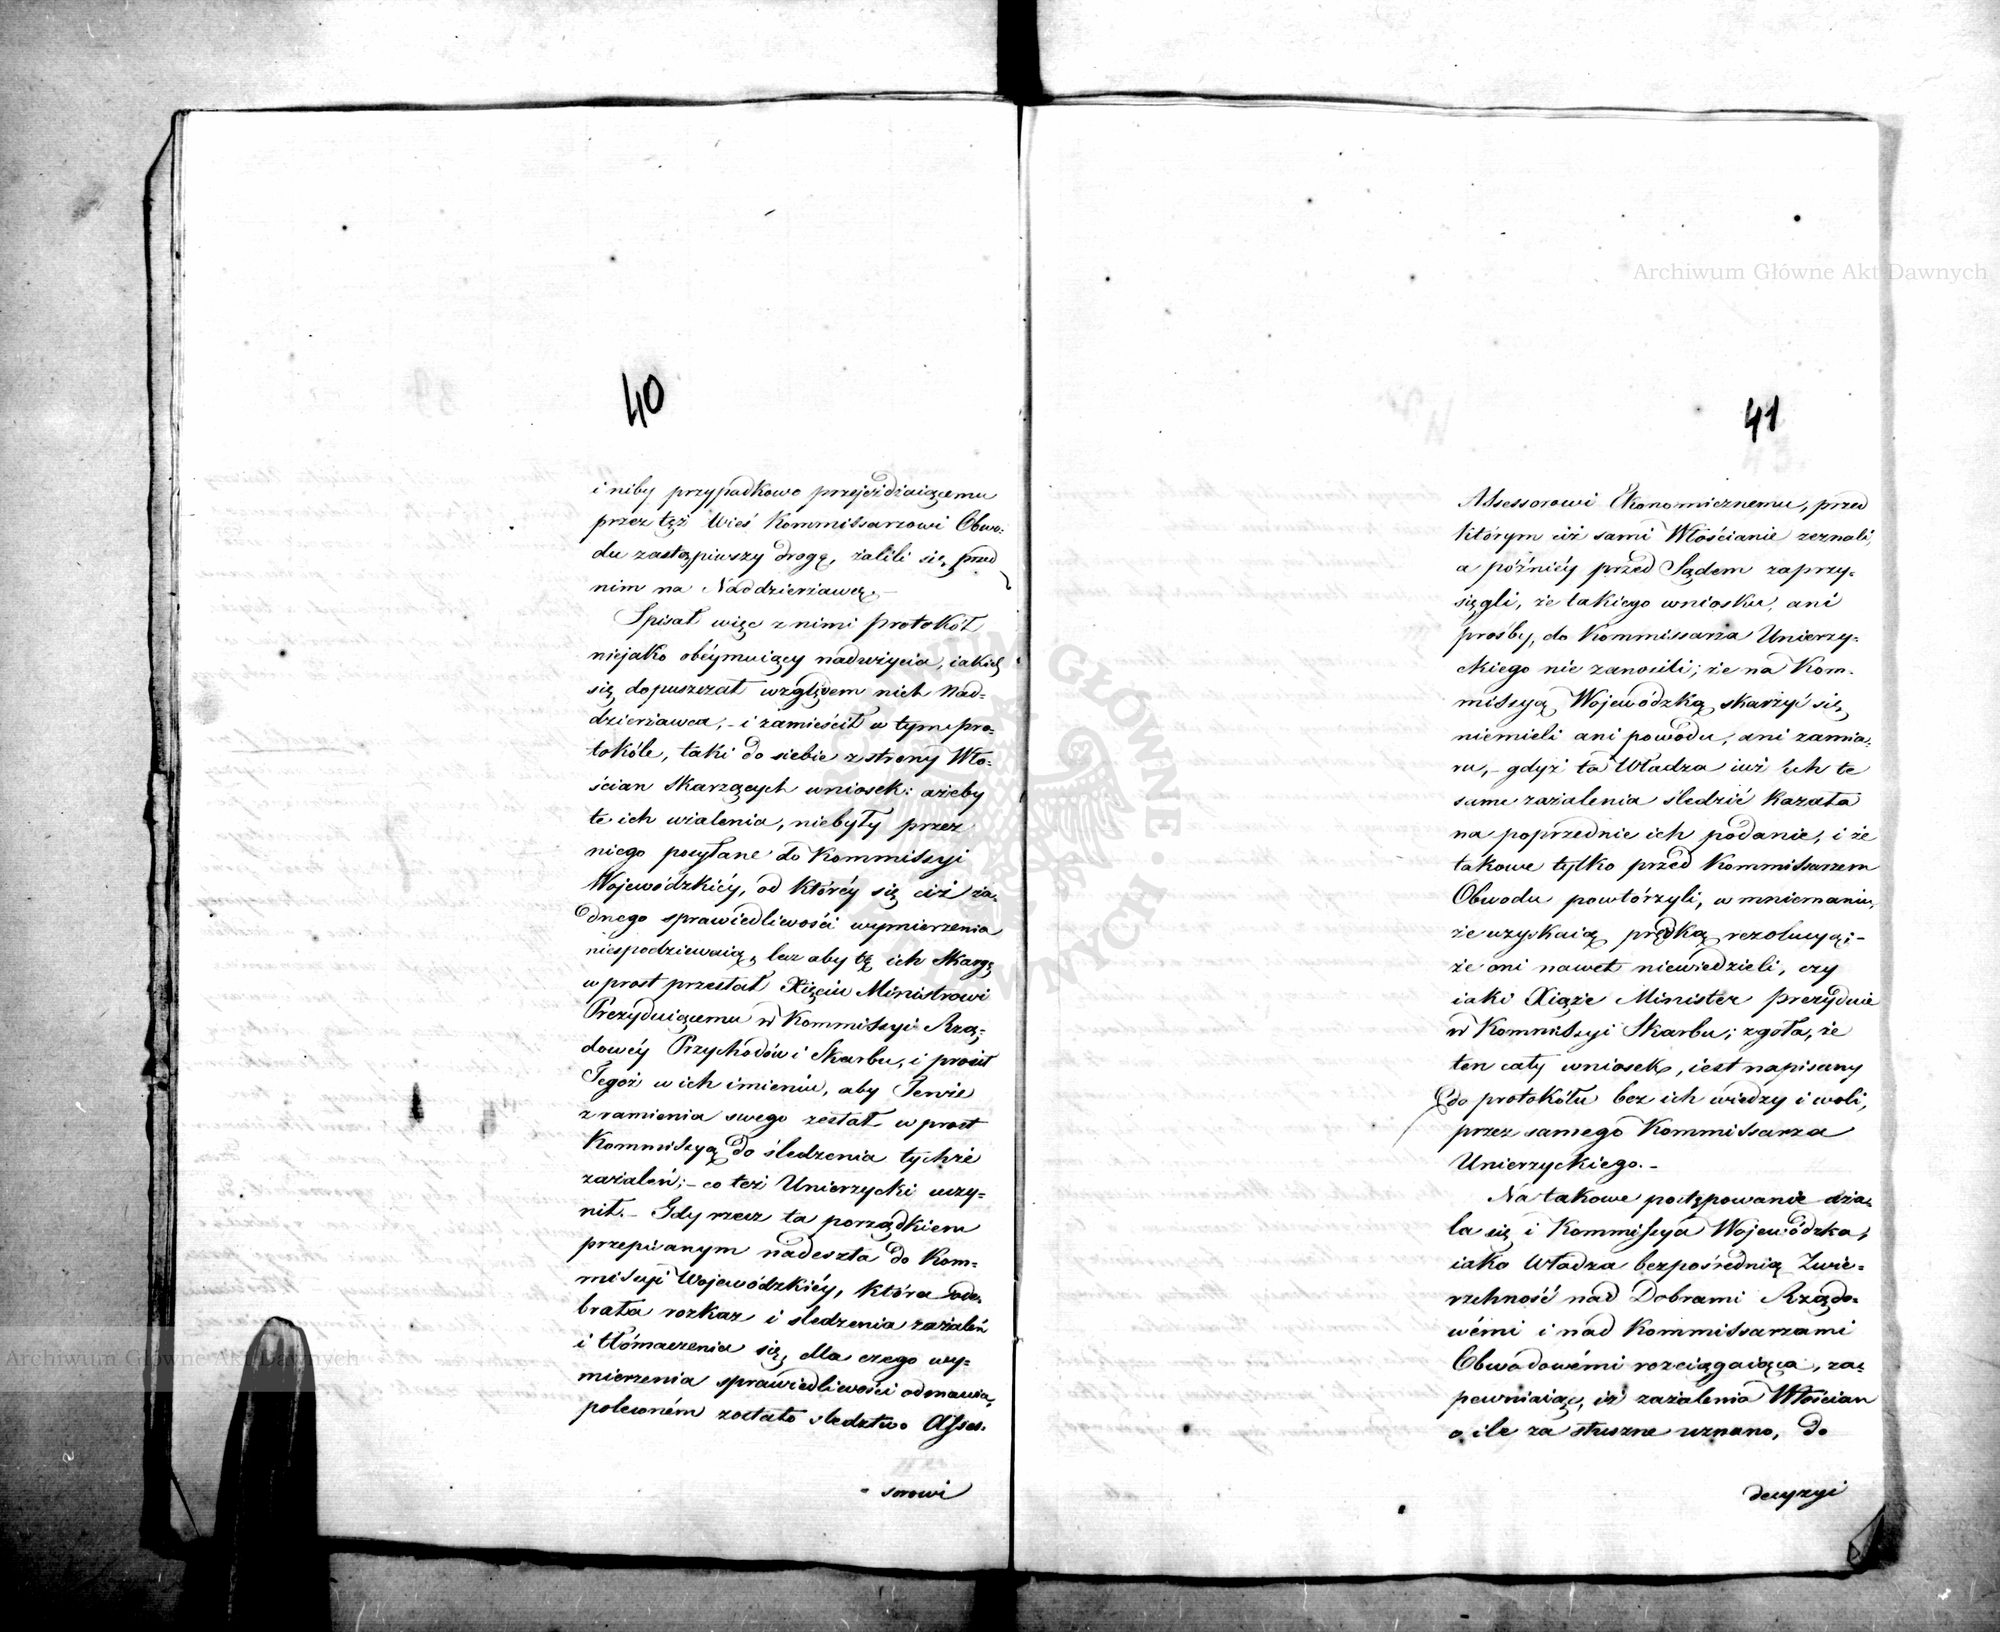 40
i niby przypadkowo przejeżdżaiącemu
przez tęż Wieś Kommissarzowi Obwo-
du zastąpiwszy drogę, żalili się przed
nim na Naddzierżawcę. –
Spisał więc z nimi protokół
niejako obeymuiący nadużycia, iakich
się dopuszczał względem nich Nad-
dzierżawca, – i zamieścił w tym pro-
tokóle, taki do siebie z strony Wło-
ścian skarzących wniosek: ażeby
te ich użalenia, niebyły przez
niego posyłane do Kommissyi
Wojewódzkiéy, od któréy się iuż ża-
dnego sprawiedliwości wymierzenia
niespodziewaią, lecz aby tę ich skargę
wprost przesłał Xięciu Ministrowi
Prezyduiącemu w Kommissyi Rzą-
dowéy Przychodów i Skarbu, i prosił
Tegoż w ich imieniu, aby Tenże
z ramienia swego zesłał wprost
Kommissyą do śledzenia tychże
zażaleń; – co też Unierzycki uczy-
nił. – Gdy rzecz ta porządkiem
przepisanym nadeszła do Kom-
missyi Wojewódzkiéy, która ode-
brała rozkaz i śledzenia zażaleń
i tłómaczenia się, dla czego wy-
mierzenia sprawiedliwości odmawia,
poleconém zostało śledztwo Asses-
- sorowi
41
Assessorowi Ekonomicznemu, przed
którym ciż sami Włościanie zeznali,
a późniéy przed Sądem zaprzy-
sięgli, że takiego wniosku, ani
prośby, do Kommissarza Unierzy-
ckiego nie zanosili; że na Kom-
missyą Wojewódzką skarzyć się,
niemieli ani powodu, ani zamia-
ru, – gdyż ta Władza iuż ich te
same zażalenia śledzić kazała
na poprzednie ich podanie, i że
takowe tylko przed Kommissarzem
Obwodu powtórzyli, w mniemaniu,
że uzyskaią prędką rezolucyą; –
że oni nawet niewiedzieli, czy
iaki Xiąże Minister prezyduie
w Kommissyi Skarbu; zgoła, że
ten cały wniosek, iest napisany
do protokółu bez ich wiedzy i woli,
przez samego Kommissarza
Unierzyckiego. –
Na takowe postępowanie uża-
la się i Kommissya Wojewódzka,
iako Władza bezpośrednią Zwie-
rzchność nad Dobrami Rządo-
wémi i nad Kommissarzami
Obwodowémi rozciągaiąca, za-
pewniaiąc, iż zażalenia Włościan
o ile za słuszne uznano, do
decyzyi
Archiwum Główne Akt Dawnych
Archiwum Główne Akt Dawnych